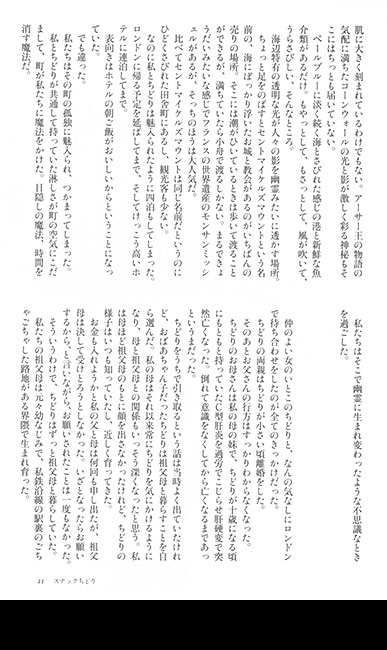 肌に大きく刻まれているわけでもない。アーサー王の物語の
気配に満ちたコーンウォールの光と影が激しく彩る神秘もそ
こにはちっとも届いていない。
ペールブルーに淡く続く海とさびれた感じの港と新鮮な魚
介類があるだけ。もやっとして、もさっとして、風が吹いて、
うらさびしい、そんなところ。
海辺特有の透明な光が人々の影を幽霊みたいに透かす場所。
ちょっと足をのばすとセントマイケルズマウントという名
前の、海にぽっかり浮いたお城と教会があるのがいちばんの
売りの場所。そこには潮がひいているときは歩いて渡ること
ができるが、満ちていたら小舟で渡るしかない。まるできょ
うだいみたいな感じでフランスの世界遺産のモンサンミッシ
ェルがあるが、そっちのほうは大人気だ。
比べてセントマイケルズマウントは同じ名前だというのに
ひどくさびれた田舎町にあるし、観光客も少ない。
なのに私とちどりは魅入られたように四泊もしてしまった。
ロンドンに帰る予定を延ばしてまで、そしてけっこう高いホ
テルに連泊してまで。
表向きはホテルの朝ご飯がおいしいからということになっ
ていた。
でも違った。
私たちはその町の孤独に魅入られ、つかまってしまった。
私とちどりが共通して持っていた淋しさが町の空気にこだ
まして、町が私たちに魔法をかけた。目隠しの魔法、時間を
消す魔法だ。
私たちはそこで幽霊に生まれ変わったような不思議なとき
を過ごした。
仲のよい女のいとこのちどりと、なんの気なしにロンドン
で待ち合わせをしたのが全てのきっかけだった。
ちどりの両親はちどりが小さい頃離婚をした。
そのあとお父さんの行方はすっかりわからなくなった。
ちどりのお母さんは私の母の妹で、ちどりが十歳になる頃
にもともと持っていたC型肝炎を過労でこじらせ肝硬変で突
然亡くなった。倒れて意識をなくしてから亡くなるまであっ
というまだった。
ちどりをうちで引き取るという話は当時よく出ていたけれ
ど、おばあちゃん子だったちどりは祖父母と暮らすことを自
ら選んだ。私の母はそれ以来常にちどりを気にかけるように
なり、母と祖父母との関係もいっそう深くなったと思う。私
は母ほど祖父母のもとに顔を出さなかったけれど、ちどりの
様子はいつも知っていたし、近しく育ってきた。
お金も入れようかと私の父と母は何回も申し出たが、祖父
母は決して受けとろうとしなかった。いざとなったらお願い
するから、と言いながら、お願いされたことは一度もなかった。
そういうわけで、ちどりはずっと祖父母と暮らしていた。
私たちの祖父母は元々幼なじみで、私鉄沿線の駅裏のごち
ゃごちゃした路地がある界隈で生まれ育った。
11 スナックちどり